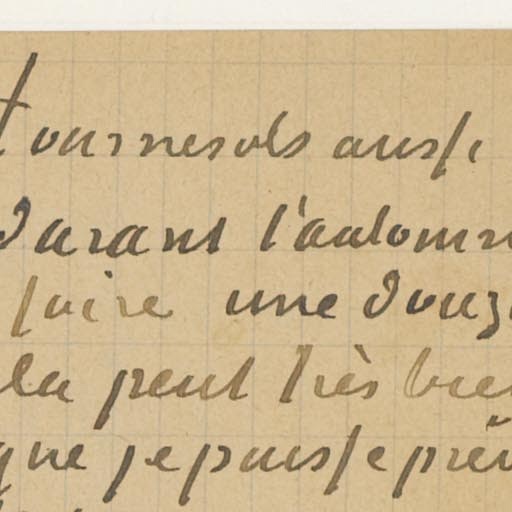 tournesols aussi
durant l'automn
faire une douz
la peut très bien
que je puisse prév